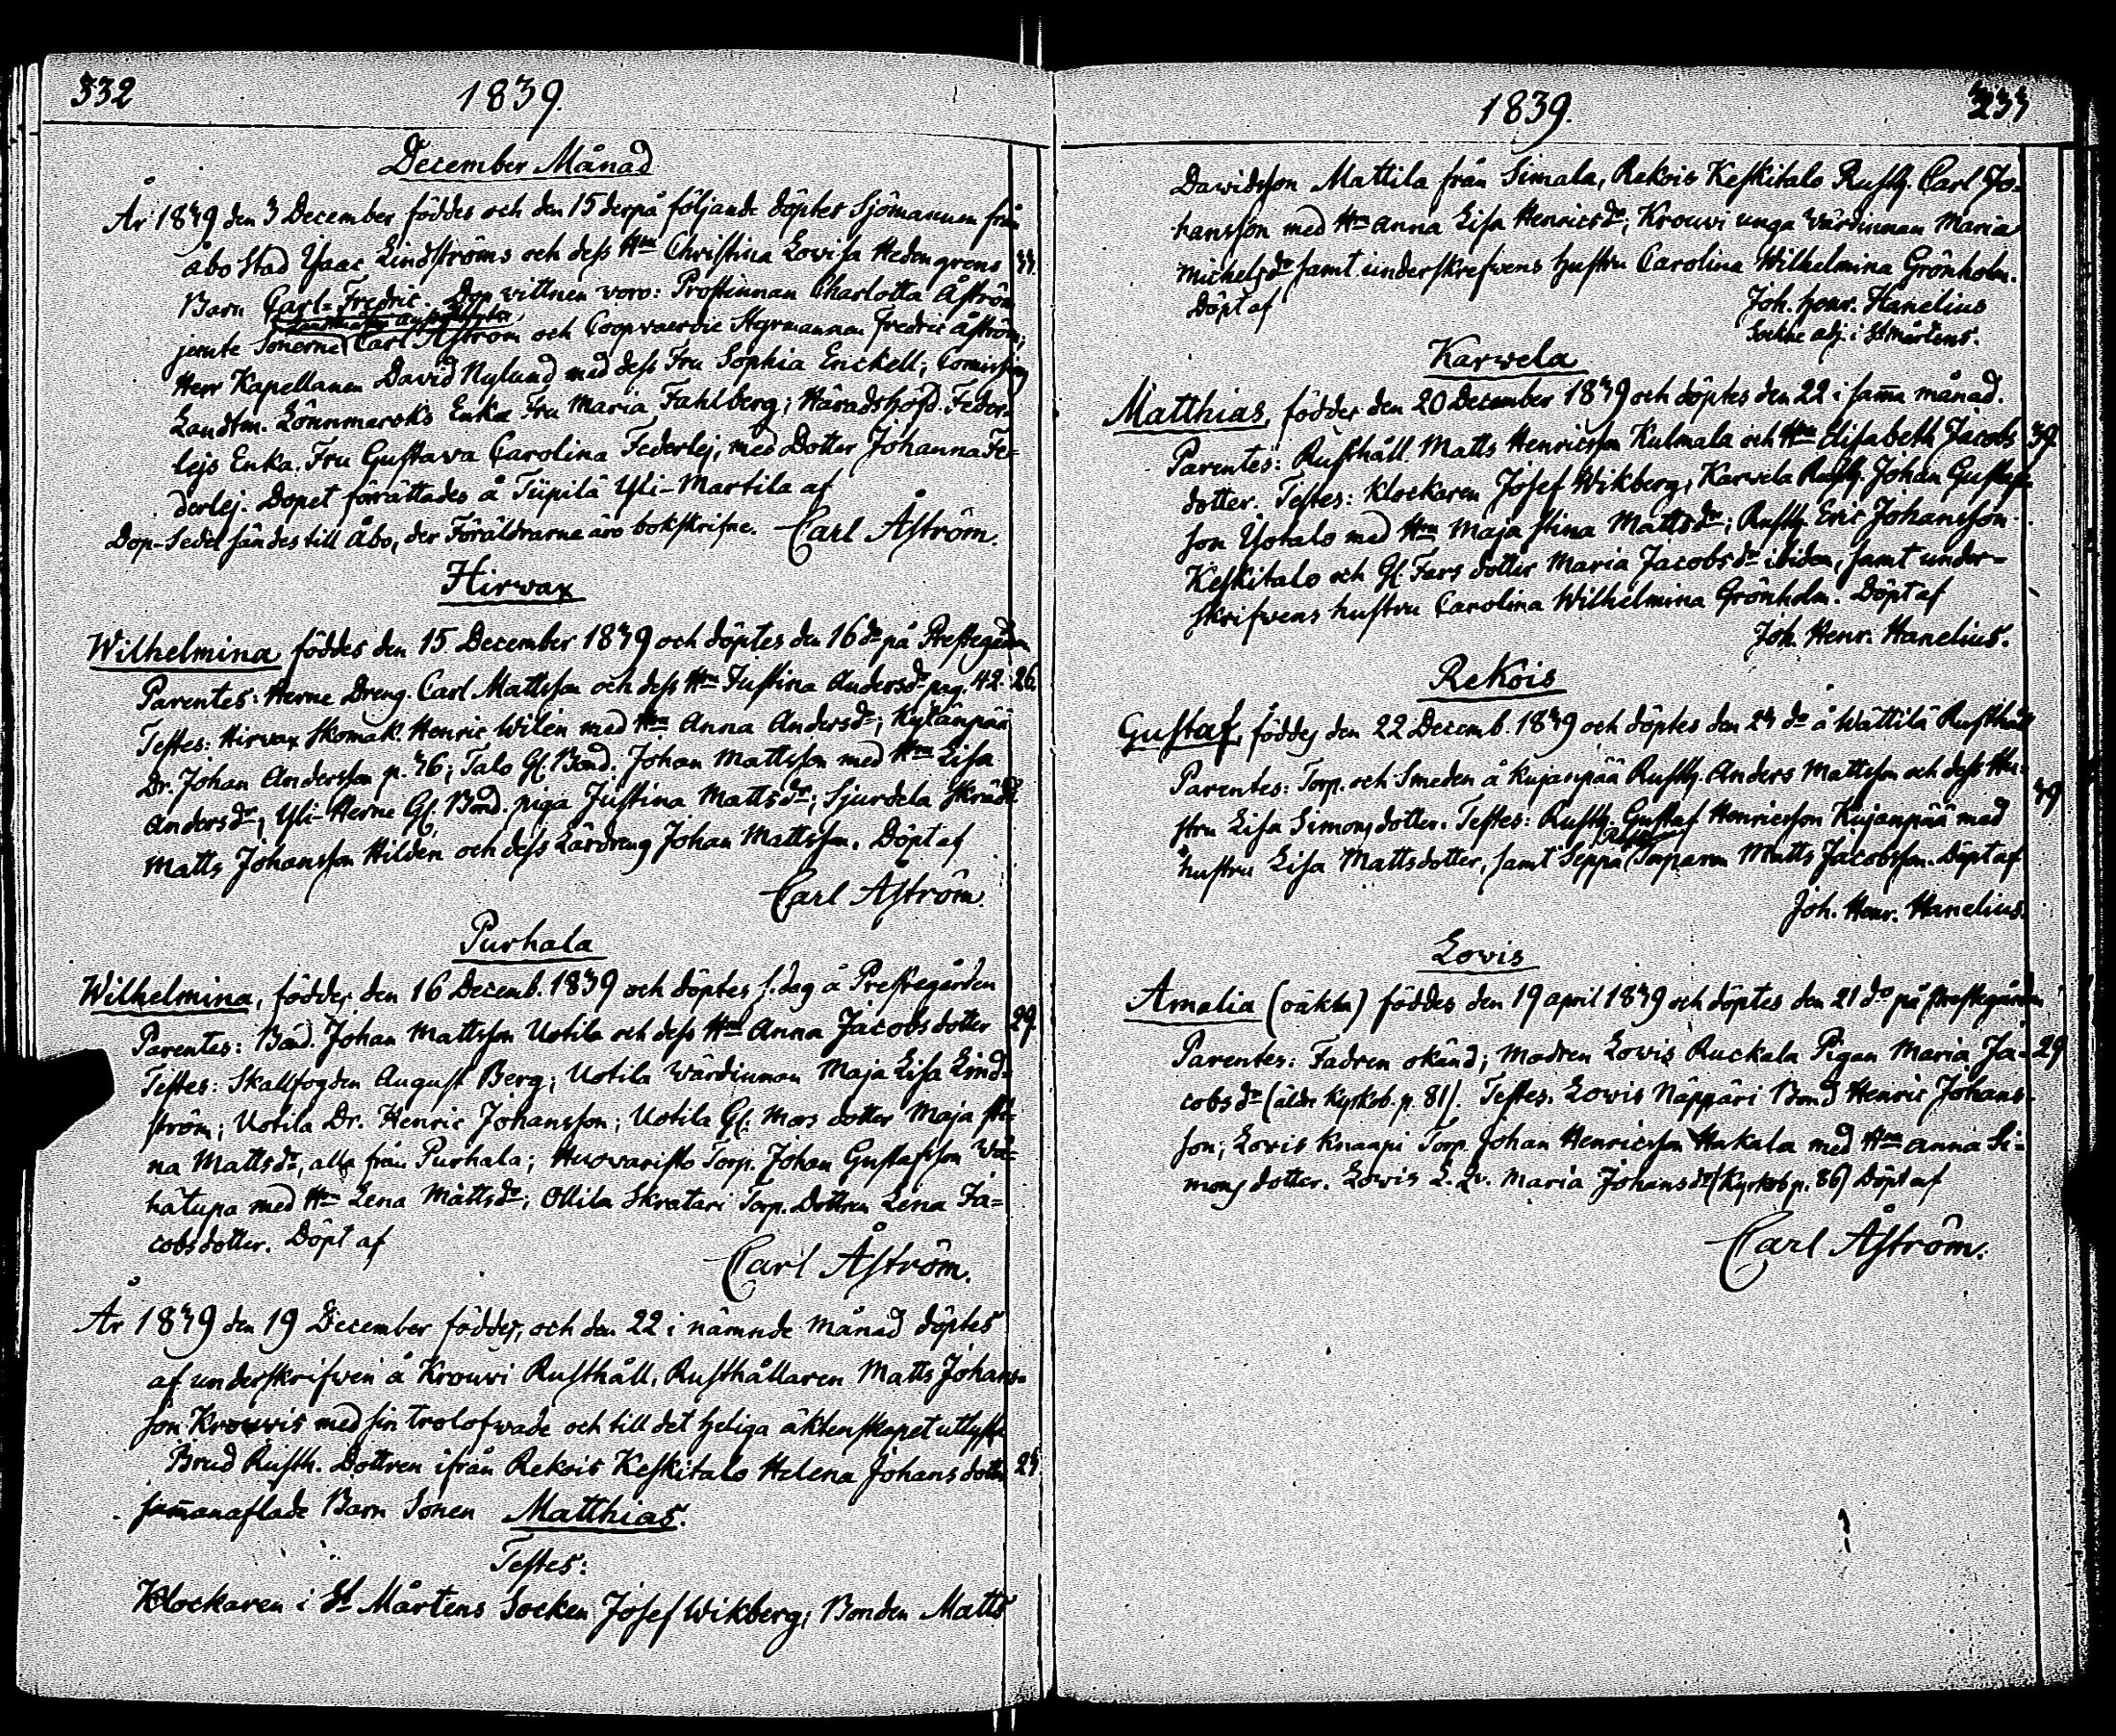 332
1839.
December Månad
År 1839 den 3 December föddes och den 15 derpå följande döptes Sjömannen från
Åbo Stad Isaac Lindströms och dess Hu Christina Lovisa Hedengrens 33.
Barn Carl-Fredric. Dop vittnen voro: Prostinnan Charlotta Åström
jemte Sönerne Carl Åström och Coopvaerdie Styrmannen Fredric Åström;
Herr Kapellanen David Nylund med dess Fru Sophia Enckell; Comissions
Landtm. Lönnmarcks Enka Fru Maria Fahlberg; Häradshöfd. Feder-
lejs Enka, Fru Gustava Carolina Federlej, med Dotter Johanna Fe-
derlej. Dopet förrättades å Tiipilä Yli-Martila af
Dop-Sedel sändes till Åbo, der Föräldrarne äro bokskrifne. Carl Åström.
Hirvax
Wilhelmina, föddes den 15 December 1839 och döptes den 16 do på Prestegården
Parentes: Herne Dreng. Carl Mattsson och dess Hu Justina Andersdr pag. 42. 26.
Testes: Hirvax Skomak. Henric Wilen med Hu Anna Andersdr; Kylänpää
Dr. Johan Andersson p. 36; Talo Gl. Bond. Johan Mattsson med Hu Lisa
Andersdr; Yli-Herne Gl. Bond. piga Justina Mattsdr; Sjurdela Skrädd.
Matts Johansson Hilden och dess Lärdreng Johan Mattsson. Döpt af
Carl Åström.
Purhala
Wilhelmina, föddes den 16 Decemb. 1839 och döptes s. dag å Prestegården
Parentes: Bond. Johan Mattsson Uotila och dess Hu Anna Jacobsdotter 29.
Testes: Skallfogden August Berg; Uotila Wärdinnan Maja Lisa Lind-
ström; Uotila Dr. Henric Johansson; Uotila Gl. Mors dotter Maja sti-
na Mattsdr, alla från Purhala; Huovaristo Torp. Johan Gustafsson Wä-
hätupa med Hu Lena Mattsdr; Ollila Skratari Torp. Dottren Lena Ja-
cobsdotter. Döpt af
Carl Åström.
År 1839 den 19 December föddes, och den 22 i nämnde Månad döptes
af underskrifwen å Krouwi Rusthåll, Rusthållaren Matts Johans-
son Krouwis med sin trolofwade och till det heliga äktenskapet utlyste
Brud Rusth. Dottren ifrån Rekois Keskitalo Helena Johansdotter 23.
sammanaflade Barn Sonen Matthias.
Testes:
Klockaren i St Mårtens Socken Josef Wikberg; Bonden Matts
1839.
333
Davidsson Mattila från Simala, Rekois Keskitalo Rusth. Carl Jo-
hansson med Hu Anna Lisa Henricsdr; Krouwi unga Wärdinnan Maria
Michelsdr samt underskrefwens hustru Carolina Wilhelmina Grönholm.
Döpt af Joh. Henr. Hanelius
Sockne adj. i St Mårtens.
Karwela
Matthias, föddes den 20 December 1839 och döptes den 22 i samma månad.
Parentes: Rusthåll. Matts Henricsson Kulmala och Hu Elisabeth Jacobs 39.
dotter. Testes: Klockaren Josef Wikberg; Karwela Rusth. Johan Gustafs-
son Isotalo med Hu Maja stina Mattsdr; Rusth. Eric Johansson
Keskitalo och Gl. Fars dotter Maria Jacobsdr ibidem, samt under-
skrifwens hustru Carolina Wilhelmina Grönholm. Döpt af
Joh. Henr. Hanelius.
Rekois
Gustaf, föddes den 22 Decemb. 1839 och döptes den 23 do å Wättilä Rusthåll
Parentes: Torp. och Smeden å Kujanpää Rusth. Anders Mattsson och dess Hu-
stru Lisa Simonsdotter. Testes: Rusth. Gustaf Henricsson Kujanpää med 39
hustru Lisa Mattsdotter, samt Seppä Torparen Matts Jacobsson. Döpt af
Joh. Henr. Hanelius.
Lovis
Amalia (oäkta) föddes den 19 april 1839 och döptes den 21 do på Prestegården
Parentes: Fadren okänd; Modren Lovis Ruckala Pigan Maria Ja- 29
cobsdr (äldre Kyrkob. p. 81). Testes: Lovis Näppäri Bond Henric Johans-
son; Lovis Knaapi Torp. Johan Henricsson Hakala med Hu Anna Si-
monsdotter. Lovis L. Qv. Maria Johansdr (Kyrkob p. 86) Döpt af
Carl Åström.